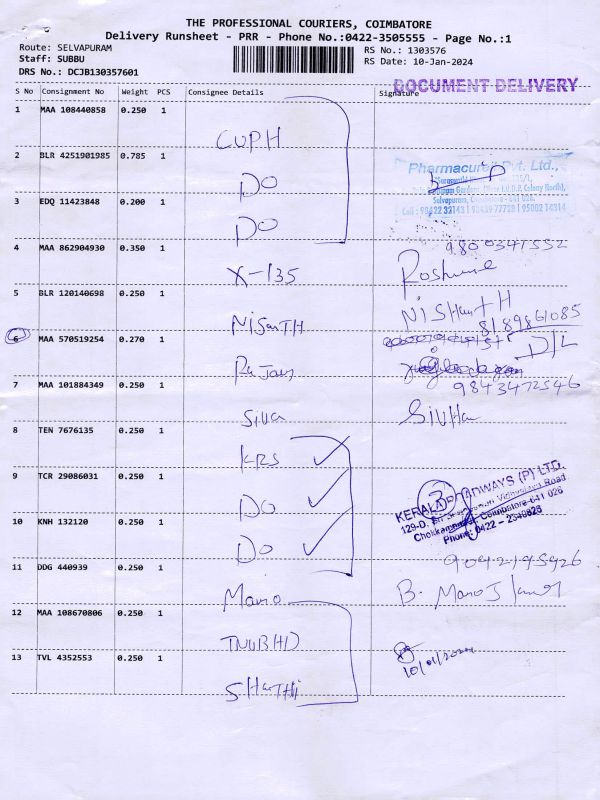 THE PROFESSIONAL COURIERS, COIMBATORE
Delivery Runsheet - PRR - Phone No.:0422-3505555 - Page No.:1
Route: SELVAPURAM
RS No.: 1303576
Staff: SUBBU
RS Date: 10-Jan-2024
DRS No.: DCJB130357601
DOCUMENT DELIVERY
S No Consignment No Weight PCS Consignee Details Signature
1 MAA 108440858 0.250 1
CUPH
2 BLR 4251901985 0.785 1
Pharmacureil Pvt. Ltd.,
DO
3 EDQ 11423848 0.200 1
Selvapuram, Coimbatore - 641 026.
Cell : 98422 33143 | 98439 77728 | 95002 14314
DO
4 MAA 862904930 0.350 1
9800347552
X-135
5 BLR 120140698 0.250 1
NISHANTH
8189861085
NISANTH
6 MAA 570519254 0.270 1
D/L
Rajan
7 MAA 101884349 0.250 1
9843472546
Siva
8 TEN 7676135 0.250 1
KRS
9 TCR 29086031 0.250 1
KERALA ROADWAYS (P) LTD.
DO
10 KNH 132120 0.250 1
Coimbatore-641 026
Phone: 0422 - 2348828
DO
11 DDG 440939 0.250 1
9042195926
Mano
12 MAA 108670806 0.250 1
TNUBHD
13 TVL 4352553 0.250 1
10/01/2024